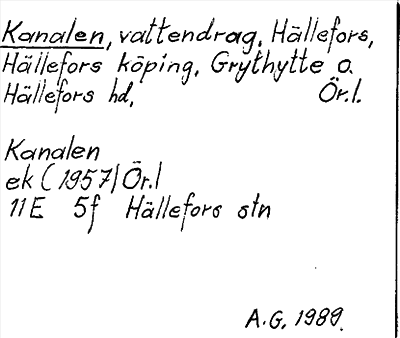 Kanalen, vattendrag, Hällefors,
Hällefors köping, Grythytte o.
Hällefors hd, Ör.l.
Kanalen
ek (1957) Ör.l
11E 5f Hällefors stn
A.G. 1989.